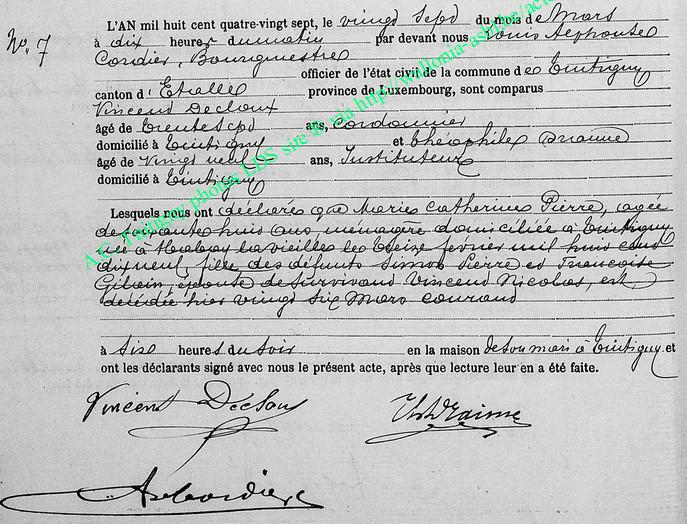 No. 7
L'AN mil huit cent quatre-vingt sept, le vingt sept du mois de Mars
à dix heures du matin par devant nous Louis Alphonse
Cordier, Bourgmestre
officier de l'état civil de la commune de Tintigny
canton d'Etalle province de Luxembourg, sont comparus
Vincent Decloux
âgé de trente sept ans, Cordonnier
domicilié à Tintigny et théophile
âgé de vingt neuf ans, Instituteur
domicilié à Tintigny
Lesquels nous ont déclarés que Marie Catherine Pierre, agée
de soixante huit ans, ménagère domiciliée à Tintigny
née à Habay la vieille le treize fevrier mil huit cent
dix neuf, fille des défunts Simon Pierre et Françoise
épouse de survivant Vincent Nicolas, est
décédée hier vingt six Mars courant
à six heures du soir en la maison de son mari à Tintigny et
ont les déclarants signé avec nous le présent acte, après que lecture leur en a été faite.
Vincent Decloux
A.G. Tintigny photos LDS site @ via http://wallonia-asbl.be/